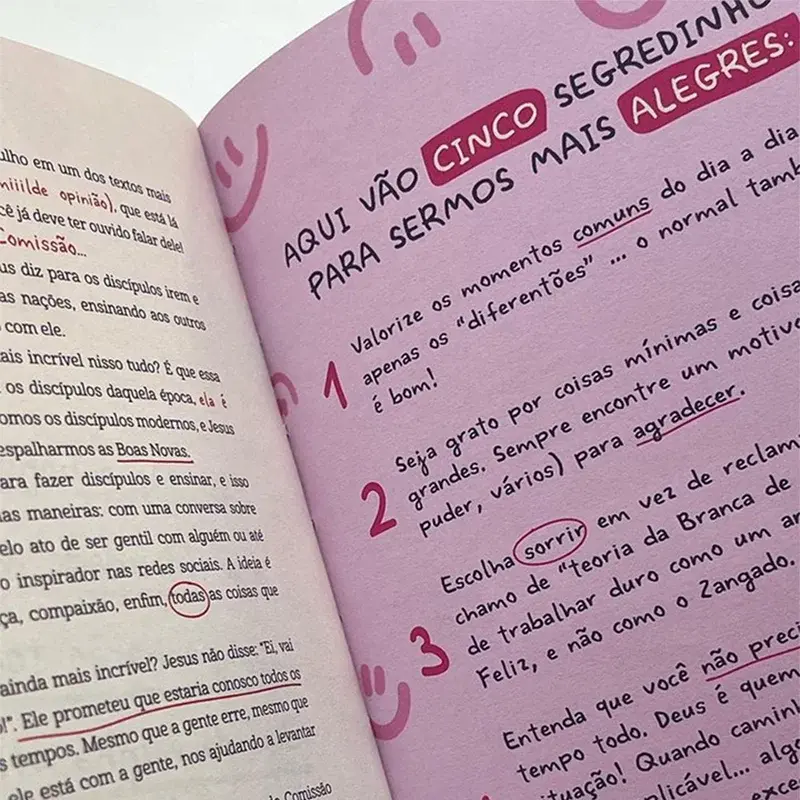 um dos textos mais
opinião), que está lá
já deve ter ouvido falar dele!
Comissão...
diz para os discípulos irem e
as nações, ensinando aos outros
com ele.
incrível nisso tudo? É que essa
os discípulos daquela época, ela é
os discípulos modernos, e Jesus
espalharmos as Boas Novas.
fazer discípulos e ensinar, e isso
maneiras: com uma conversa sobre
ato de ser gentil com alguém ou até
o inspirador nas redes sociais. A ideia é
compaixão, enfim, todas as coisas que
ainda mais incrível? Jesus não disse: "Ei, vai
Ele prometeu que estaria conosco todos os
tempos. Mesmo que a gente erre, mesmo que
ele está com a gente, nos ajudando a levantar
Comissão
AQUI VÃO CINCO SEGREDINHO
PARA SERMOS MAIS ALEGRES:
1 Valorize os momentos comuns do dia a dia
apenas os "diferentões" ... o normal tamb
é bom!
2 Seja grato por coisas mínimas e coisa
grandes. Sempre encontre um motivo
puder, vários) para agradecer.
3 Escolha sorrir em vez de reclam
chamo de "teoria da Branca de
de trabalhar duro como um an
Feliz, e não como o Zangado.
Entenda que você não preci
tempo todo. Deus é quem
situação! Quando caminh